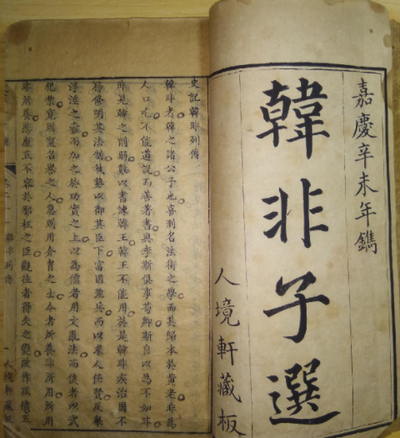 嘉慶辛未年鐫
韓非子選
人境軒藏板
史記韓非列傳
韓非者韓之諸公子也喜刑名法術之學而其歸本於黃老非為
人口吃不能道說而善著書與李斯俱事荀卿斯自以為不如非
非見韓之削弱數以書諫韓王韓王不能用於是韓非疾治國不
務脩明其法制執勢以御其臣下富國彊兵而以求人任賢反舉
浮淫之蠹而加之於功實之上以為儒者用文亂法而俠者以武
犯禁寬則寵名譽之人急則用介冑之士今者所養非所用所用
非所養悲廉直不容於邪枉之臣觀往者得失之變故作孤憤五